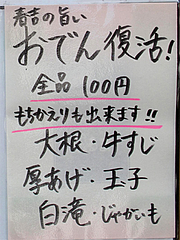 春吉の旨い
おでん復活!
全品 100円
もちかえりも出来ます!!
大根・牛すじ
厚あげ・玉子
白滝・じゃがいも